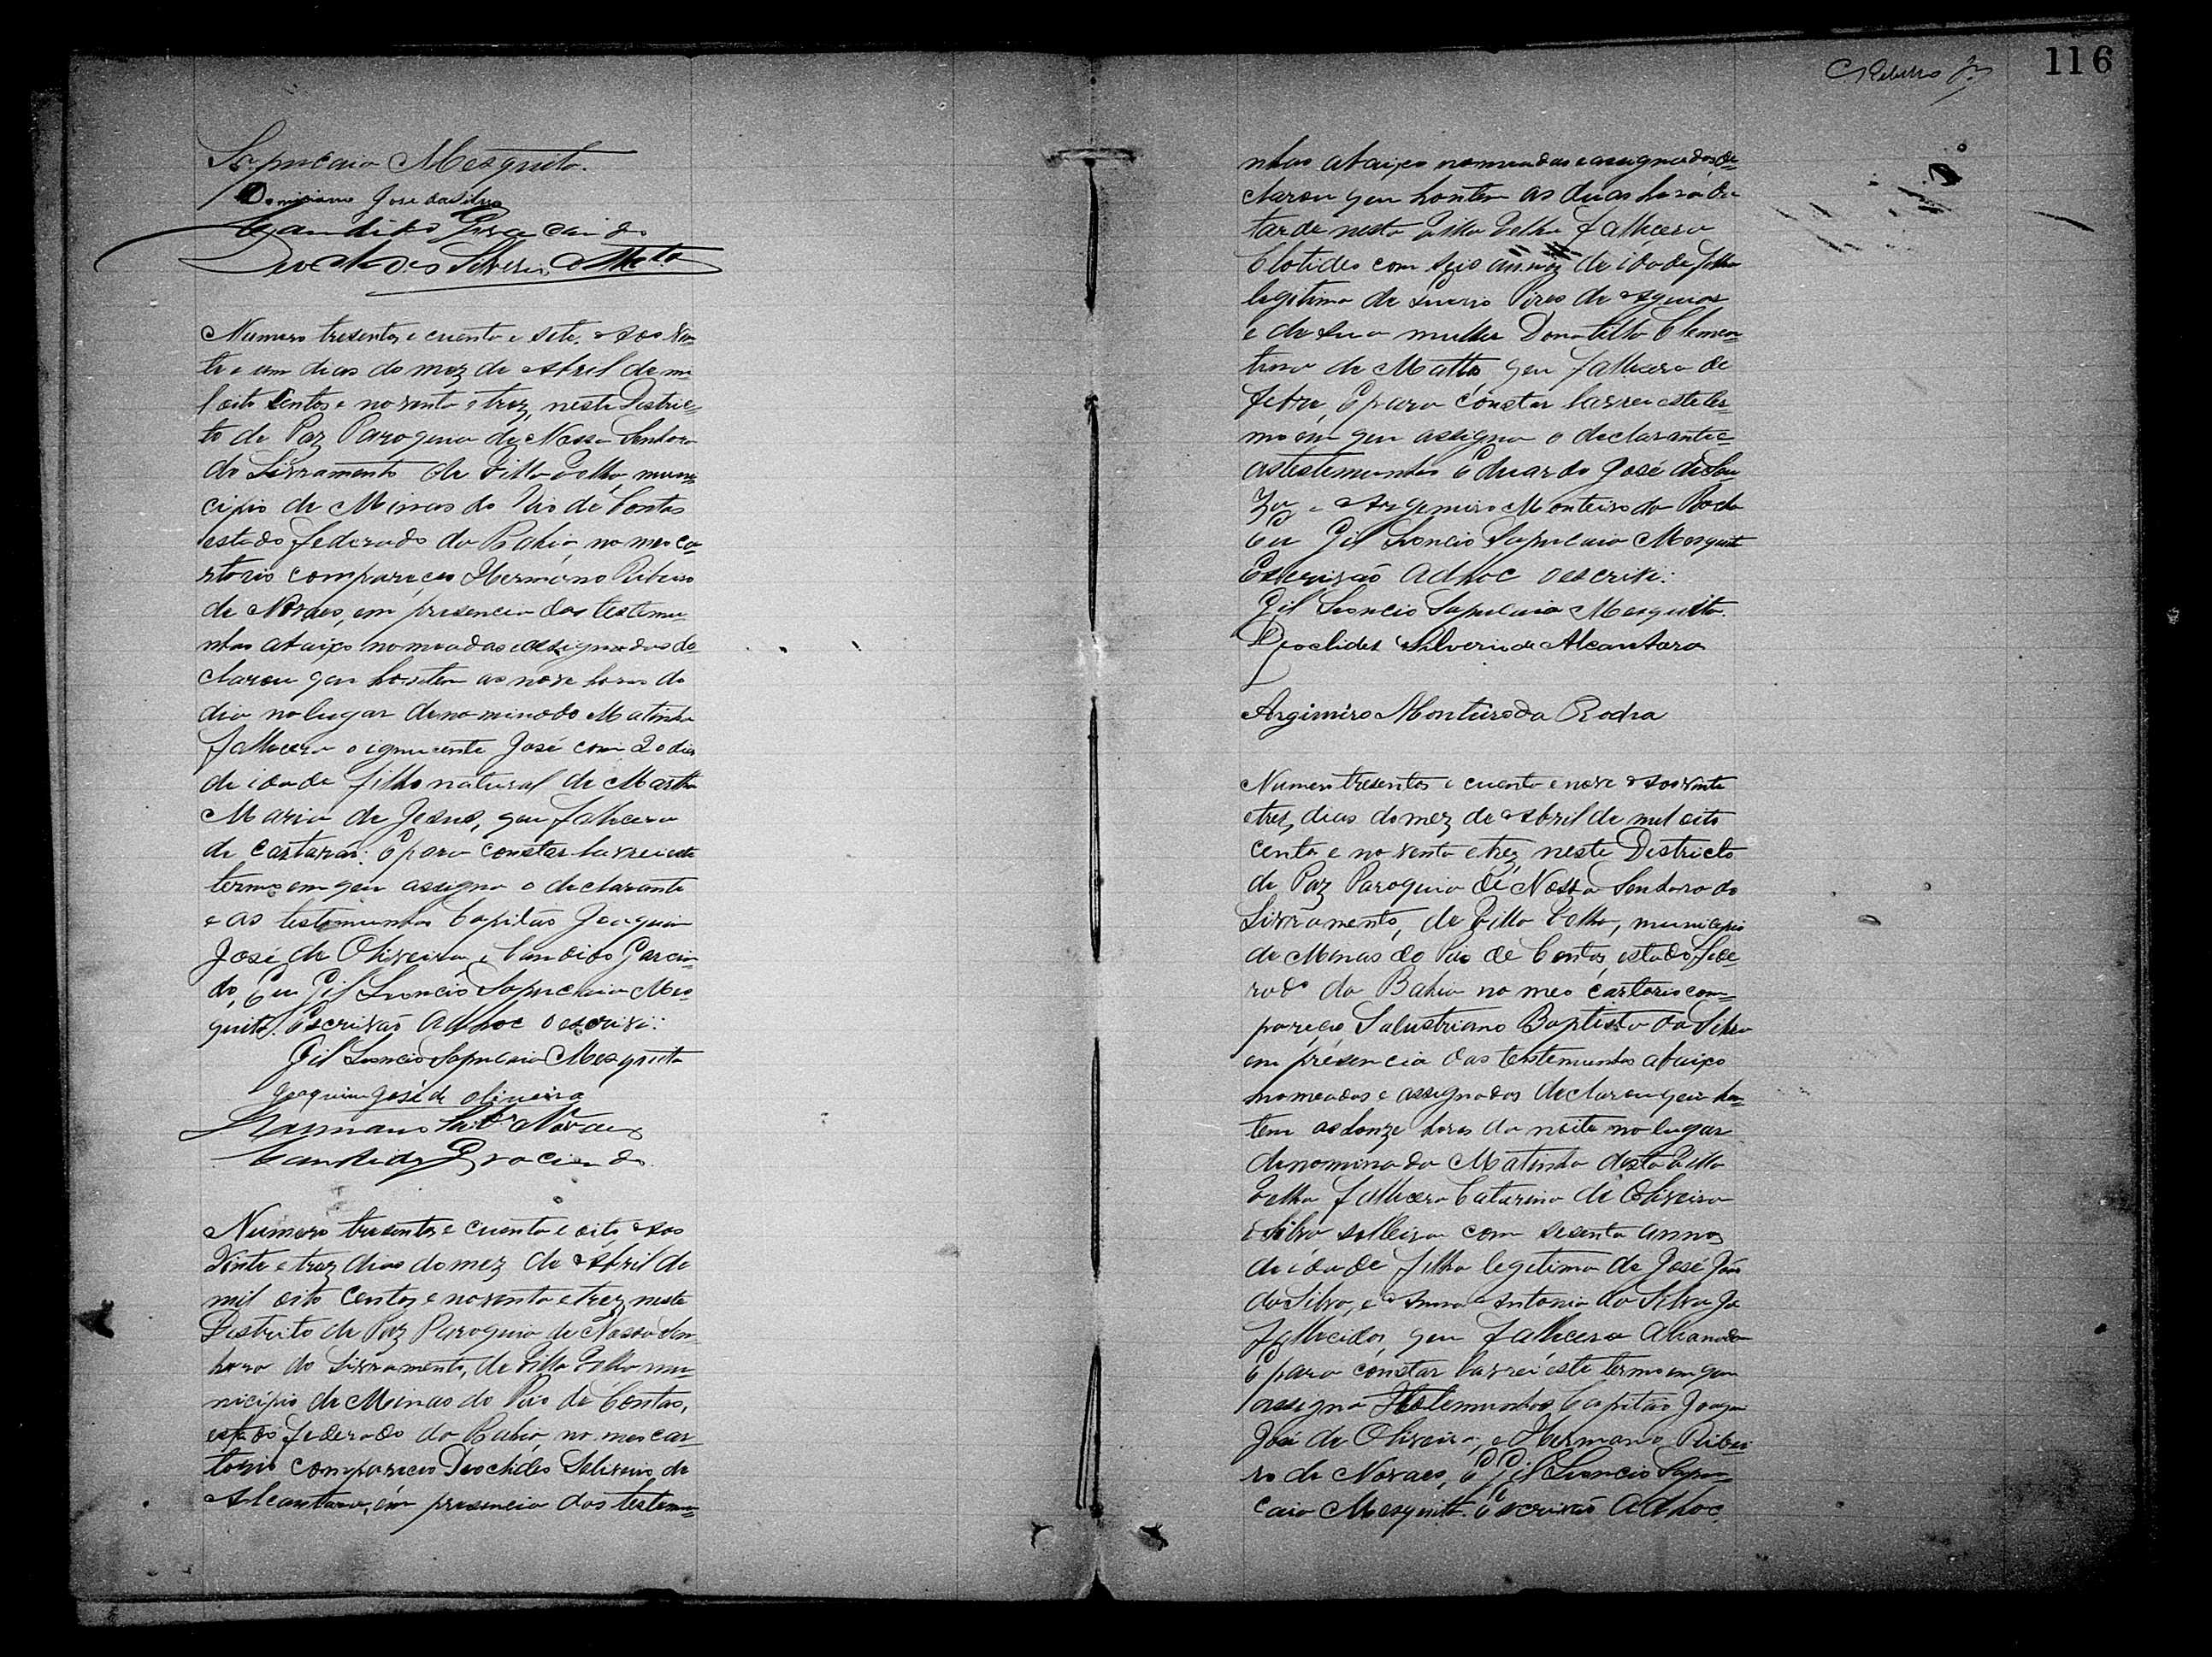 Sapucaia Mesquita.
Domiciano Jose da Silva
Candido Graciando
Numero tresentos e cuenta e sete. Aos vin-
te e um dias do mez de Abril de mi
l oito sentos e noventa e trez, neste Distric-
to de Paz Paroquia de Nossa Senhora
do Livramento de Villa Velha, muni-
cipio de Minas do Rio de Contas
estado federado da Bahia, no meo ca-
rtorio compareceo Hermano Ribeiro
de Novaes, em presencia das testemu-
nhas abaixo nomeadas e assignadas de-
clarou que hontem as nove horas do
dia no lugar denominado Matinha
falleceu o ignucente José com 20 dias
de idade filho natural de Martha
Maria de Jesus, que falleceu
de catarão: E para constar lavrei este
termo em que assigna o declarante
e as testemunhas Capitão Joaquim
José de Oliveira, e Candido Gracian-
do, Eu Gil Leoncio Sapucaia Mes-
quita. Escrivão Adhoc o escrivi:
Gil Leoncio Sapucaia Mesquita
Joaquim José de oliveira
Hermano Novaes
Candido Graciando
Numero tresentos e cuenta e oito Aos
Vinte e trez dias do mez de Abril de
mil oito centos e noventa e trez neste
Destrito de Paz Paroquia de Nossa Sen-
hora do Livramento, de Villa Velha mu-
nicipio de Minas do Rio de Contas,
estado federado da Bahia, no meo car-
torio compareceo Deoclides Silverio de
Alcantara, em presencia das testemu-
116
nhas abaixo nomeadas e assignadas, de-
clarou que hontem as duas horas da
tarde nesta Villa Velha falleceu
Clotides com seis annoz de idade filha
legitima de Pires de Aguiar
e de sua mulher Donatilla Clemen-
tina de Mattos que falleceu de
febre, E para constar lavrei este ter-
mo em que assigna o declarante e
as testemunhas Eduardo José de Sou-
za e Argemiro Monteiro da Rocha
Eu Gil Leoncio Sapucaia Mesquita
Escrivão Adhoc o escrivi:
Gil Leoncio Sapucaia Mesquita.
Deoclides Silverio de Alcantara
Argimiro Monteiro da Rocha
Numero tresentos e cuenta e nove Aos vinte
e trez dias do mez de Abril de mil oito
centos e noventa e trez, neste Districto
de Paz Paroquia de Nossa Senhora do
Livramento, de Villa Velha, municipio
de Minas do Rio de Contas, estado fede-
rado da Bahia no meo cartorio com-
pareceo Salustriano Baptista da Silva
em presencia das testemunhas abaixo
nomeadas e assignados declarou que hon-
tem as honze horas da noite no lugar
denominado Matinha desta Villa
Velha falleceu Catarina de Oliveira
e Silva solteira com sesenta annos
de idade filha legitima de José João
da Silva, e Anna Antonia da Silva Ja
fallecidos, que falleceu
E para constar lavrei este termo em que
assigna testemunhas Capitão Joaquim
José de Oliveira, e Hermano Ribei-
ro de Novaes, E Gil Leoncio Sapu-
caia Mesquita. Escrivão Adhoc.